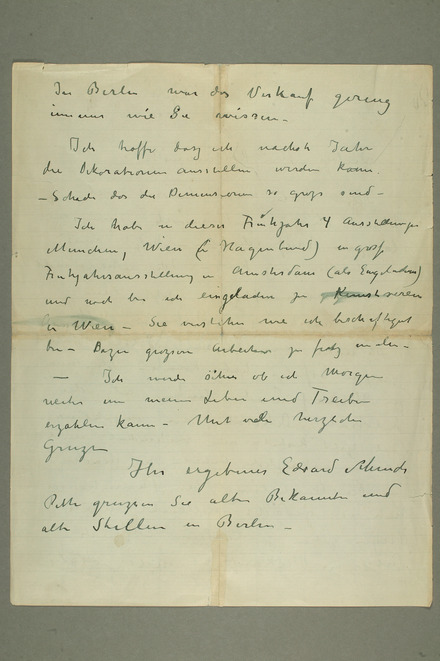 In Berlin war der Verkauf gering
immer wie Sie wissen –
Ich hoffe dasz ich nächste Jahr
die Dekorationen ausstellen werden kann.
– Schade das die Dimensionen so grosz sind –
Ich habe in dieses Frühjahr 4 Ausstellungen
München, Wien (in Hagenbund) in grosz
Frühjahrsausstellung in Amsterdam (als Eingeladen)
und noch bin ich eingeladen zu Kunstverein
in Wien – Sie verstehen wie ich beschäftiget
bin – Dazu groszen Arbeiten zu
– Ich werde ob ich Morgen
weiter um meinen Leben und Treiben
erzählen kann – Mit viele herzlichen
Gruszen
Ihr ergebenes Edvard Munch
Bitte gruszen Sie alten Bekannten und
alte Stellen in Berlin –